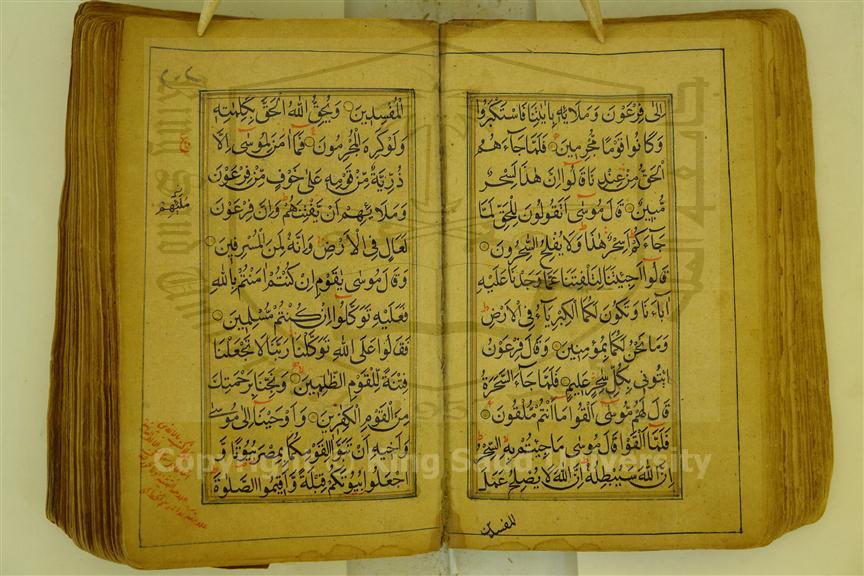 إلى فرعون وملائه بآيتنا فاستكبروا
وكانوا قوما مجرمين فلما جاءهم
الحق من عندنا قالوا إن هذا لسحر
مبين قال موسى أتقولون للحق لما
جاءكم أسحر هذا ولا يفلح السحرون
قالوا أجئتنا لتلفتنا عما وجدنا عليه
اباءنا وتكون لكما الكبرياء في الأرض
وما نحن لكما بمؤمنين وقال فرعون
ائتوني بكل سحر عليم فلما جاء السحرة
قال لهم موسى ألقوا ما أنتم ملقون
فلما ألقوا قال موسى ما جئتم به السحر
إن الله سيبطله إن الله لا يصلح عمل
المفسدين
المفسدين ويحق الله الحق بكلمته
ولو كره المجرمون فما امن لموسى إلا
ذرية من قومه على خوف من فرعون
وملائهم أن يفتنهم وإن فرعون
لعال في الأرض وإنه لمن المسرفين
وقال موسى يقوم إن كنتم امنتم بالله
فعليه توكلوا إن كنتم مسلمين
فقالوا على الله توكلنا ربنا لا تجعلنا
فتنة للقوم الظلمين ونجنا برحمتك
من القوم الكفرين وأوحينا إلى موسى
وأخيه أن تبوا لقومكما بمصر بيوتا و
اجعلوا بيوتكم قبلة وأقيموا الصلوة
Copyright © King Saud University